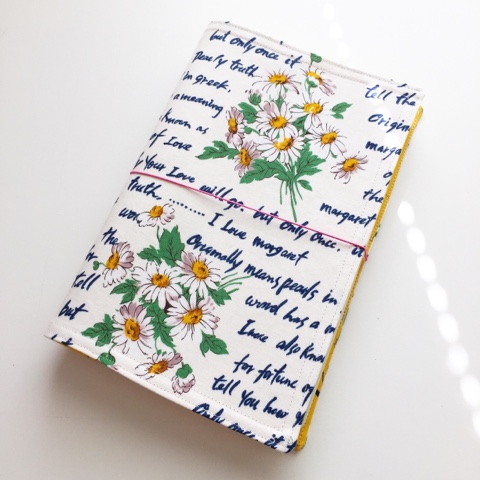 but only once it
tell the
truth
Origin
in greek.
a meaning
marga
known as
of Love
the
Your Love will go but only Once
margaret
truth, ......... I love margaret
the
Originally means pearls in
tell
word has a m
but
also know
for fortune
tell You how
Only once it